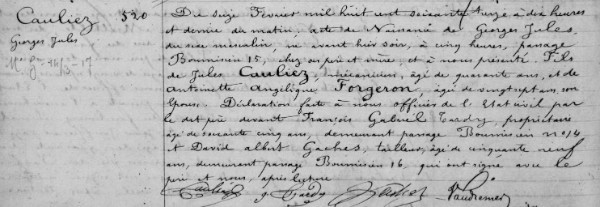 Cauliez 520
Georges Jules
Du seize Février mil huit cent soixante treize à dix heures
et demie du matin, acte de Naissance de Georges Jules
du sexe masculin, né avant hier soir, à cinq heures, passage
Bournisien 15, chez ses père et mère, et à nous présenté. Fils
de Jules Cauliez, mécanicien, âgé de quarante ans, et de
Antoinette Angélique Forgeron, âgée de vingt sept ans, son
épouse. Déclaration faite à nous officier de l'Etat civil par
le dit père devant François Gabriel Tardy, propriétaire
âgé de soixante cinq ans, demeurant passage Bournisien no 14
et David albert Gaches, tailleur, âgé de cinquante neuf
ans, demeurant passage Bournisien 16, qui ont signé avec le
père et nous, après lecture
Cauliez g Tardy Gaches